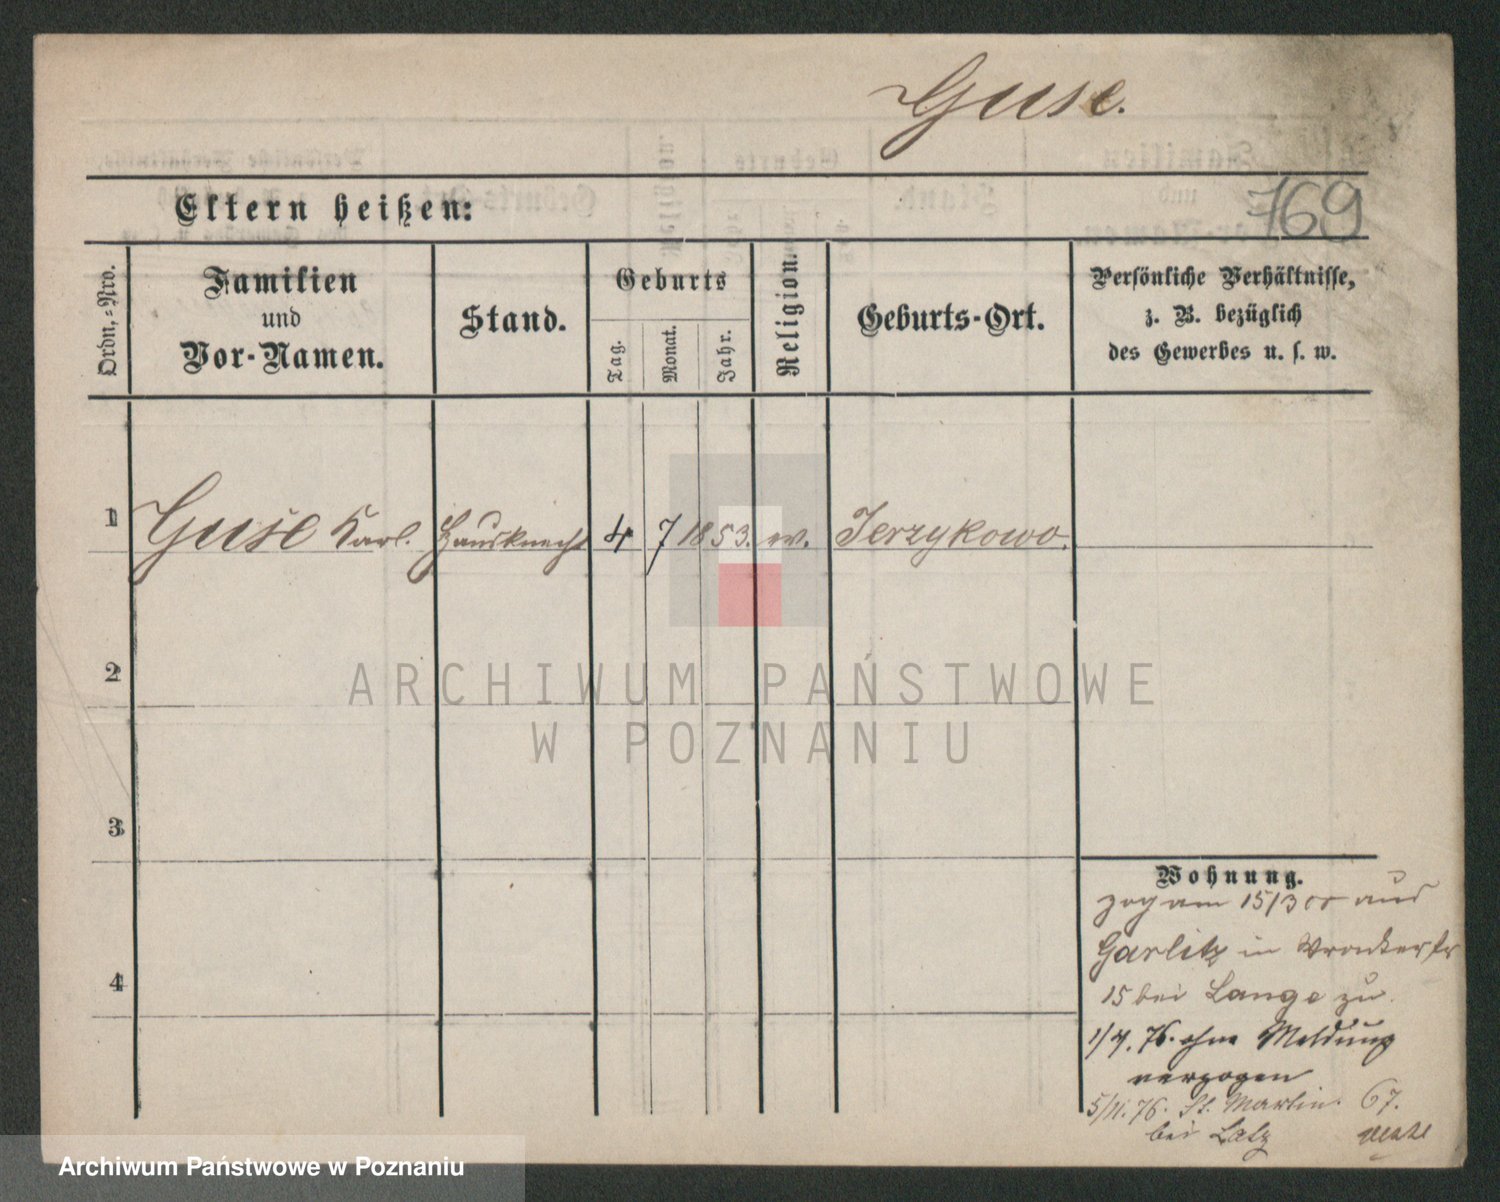 Guse.
Eltern heißen:
769
Ordn.-Nro.
Familien
und
Vor-Namen.
Stand.
Geburts
Tag.
Monat.
Jahr.
Religion.
Geburts-Ort.
Persönliche Verhältnisse,
z. B. bezüglich
des Gewerbes u. s. w.
1 Guse Karl. Hausknecht 4 7 1853. ev. Jerzykowo.
2
3
4
Wohnung.
zog am 15/3 aus
Garlitz in Wronkerstr
15 bei Lange zu.
1/4. 76. ohne Meldung
verzogen
5/11. 76. St. Martin. 67.
bei Latz
ARCHIWUM PAŃSTWOWE
W POZNANIU
Archiwum Państwowe w Poznaniu